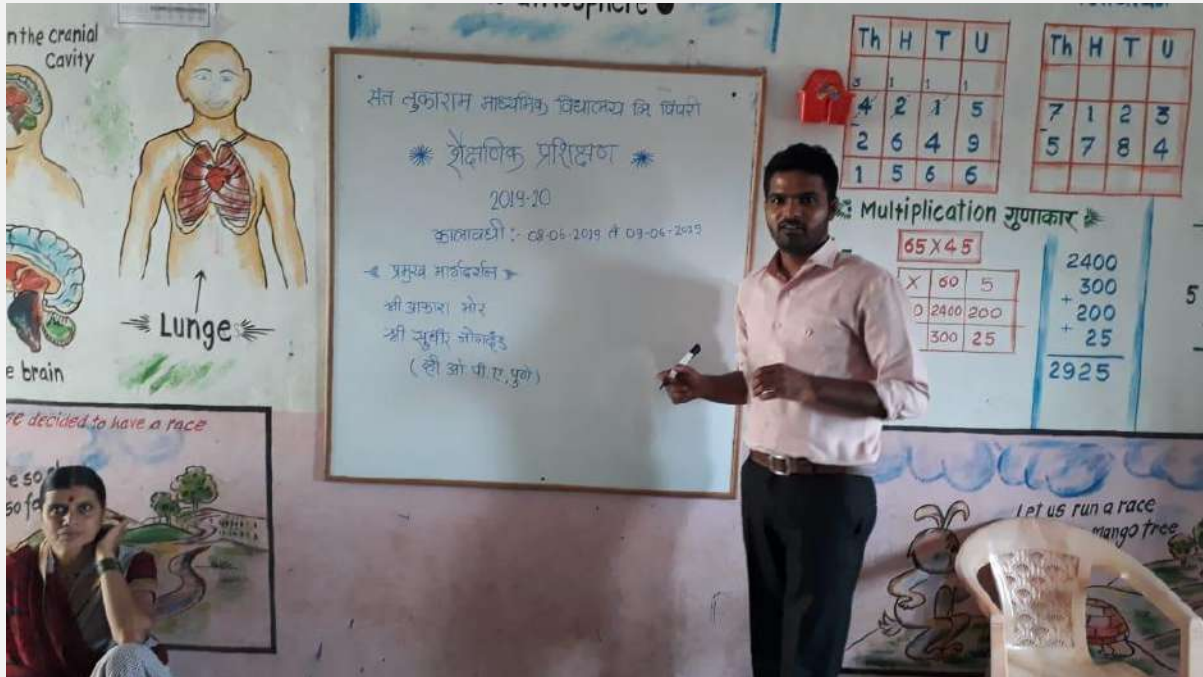 n the cranial
Cavity
Lunge
e brain
decided to have a race
e so
so fa
संत तुकाराम माध्यमिक विद्यालय पिंपरी
* शैक्षणिक प्रशिक्षण *
2019-20
कालावधी :- 08-06-2019 ते 09-06-2019
प्रमुख मार्गदर्शन
श्री आकाश भोर
श्री सुधीर
( व्ही ओ. पी. ए, पुणे )
Th H T U
3 1 1 1
4 2 1 5
- 2 6 4 9
1 5 6 6
Th H T U
7 1 2 3
- 5 7 8 4
Multiplication गुणाकार
65 X 45
X 60 5
0 2400 200
300 25
2400
300
+ 200
+ 25
2925
5
Let us run a race
mango tree